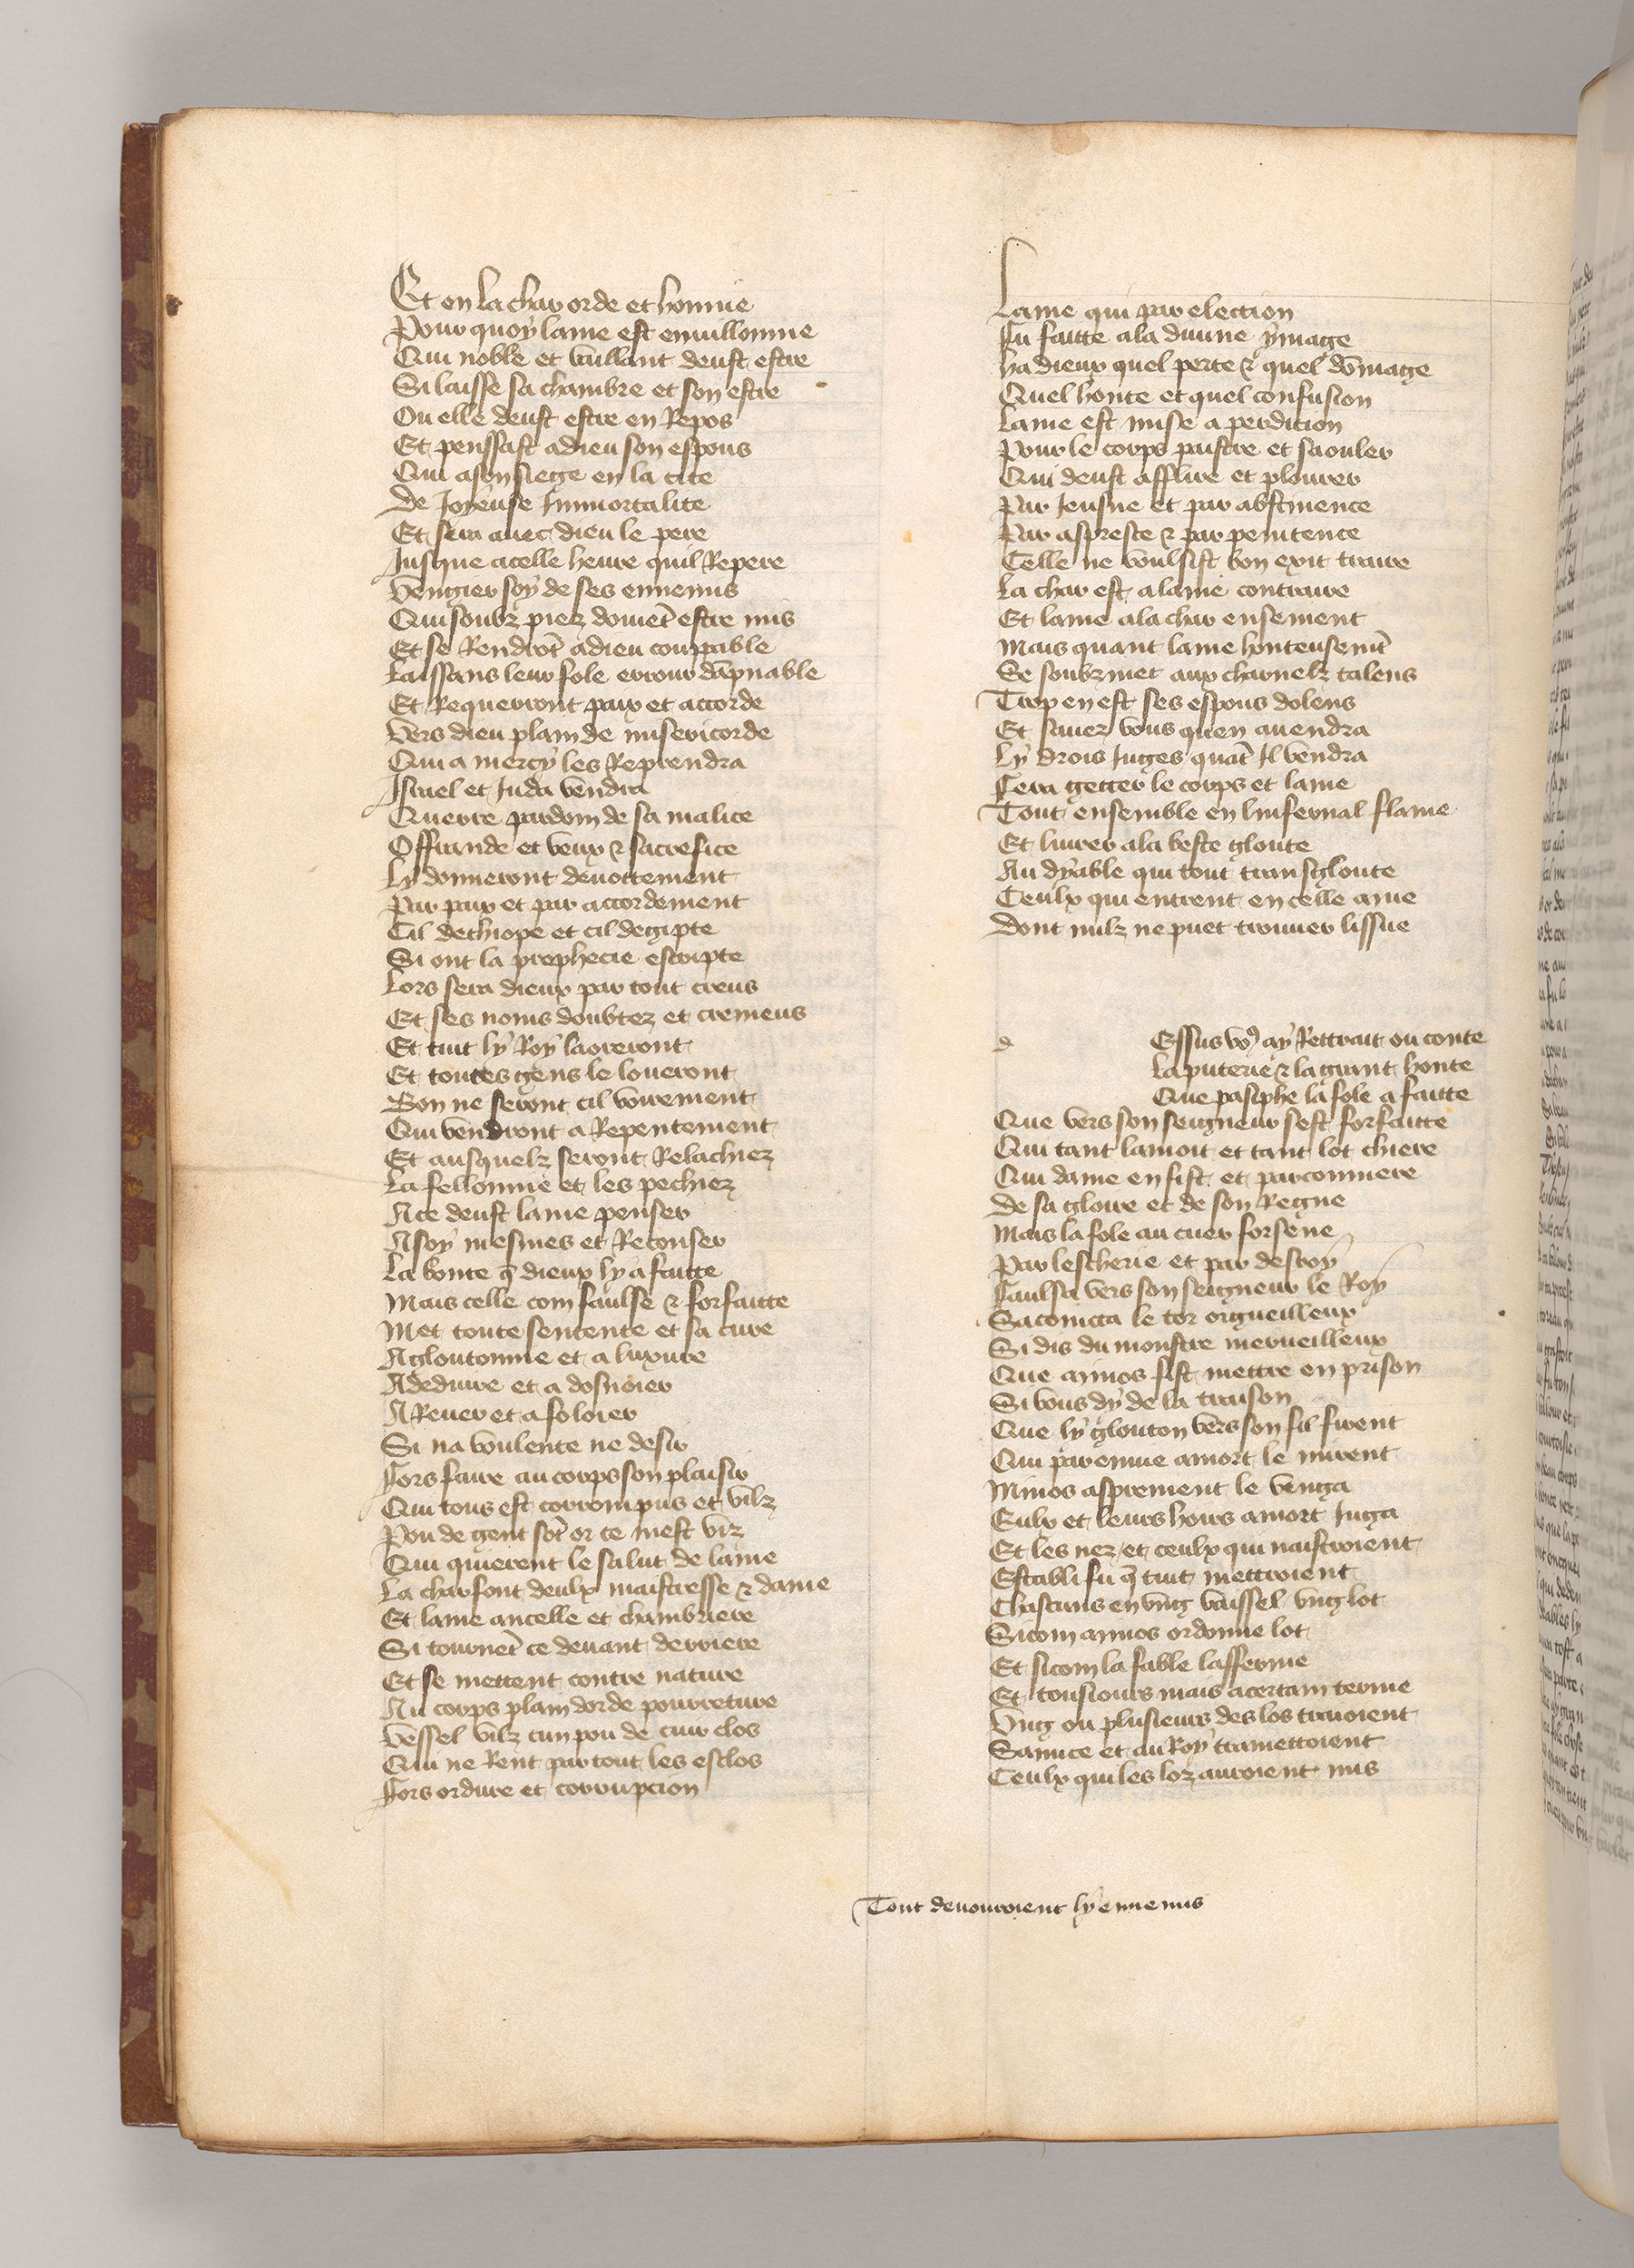 Et en la char orde et honnie
Pour quoy lame est enuillonnie
Qui noble et vaillant deust estre
Si laisse sa chambre et son estre
Ou elle deust estre en Repos
Et penssast adieu son espous
Qui a son siege en la cite
De Joyeuse Immortalite
Et sera auec dieu le pere
Jusque acelle heure quil Repere
Vengier soy de ses ennemis
Qui soubz piez doiuēt estre mis
Et se Rendrōt adieu couppable
Laissans leur fole errour dāpnable
Et Requerront paix et accorde
Vers dieu plain de misericorde
Qui a mercy les Reprendra
Israel et Juda vendra
Querre pardom de sa malice
Offrande et veux & sacrefice
Ly donneront deuottement
Par paix et par accordement
Cil dethiope et cil degipte
Si ont la prophecie escripte
Lors sera dieux par tout creus
Et ses noms doubtez et cremeus
Et tuit ly Roy laoreront
Et toutes gens le loueront
Bon ne seront cil voirement
Qui vendront a Repentement
Et ausquelz seront Relachiez
La fellonnie et les pechiez
Ace deust lame penser
Asoy mesmes et Reconser
La bonte q̄ dieux ly a faitte
Mais celle com faulse & forfaitte
Met toute sentente et sa cure
Agloutonnie et a luxure
Adeduire et a dosnoier
A Reuer et a foloier
Si na voulente ne desir
Fors faire au corps son plaisir
Qui tous est corrompus et vilz
Pou de gent sōt or ce mest viz
Qui quierent le salut de lame
La char font deulx maistresse & dame
Et lame ancelle et chambriere
Si tournēt ce deuant derriere
Et se mettent contre nature
Au corps plain dorde pourreture
Vessel vilz cun pou de cuir clos
Qui ne Rent par tout les esclos
Fors ordure et corrupcion
Lame qui par election
Fu faitte ala diuine ymage
Ha dieux quel perte & quel dōmage
Quel honte et quel confusion
Lame est mise a perdition
Pour le corps paistre et saouler
Qui deust afflire et plourer
Par Jeusne et par abstinence
Par aspreste & par penitence
Celle ne voulsist bon exit traire
La char est alame contraire
Et lame ala char ensement
Mais quant lame honteusemēt
Se soubzmet aux charnelz talens
Trop en est ses espous dolens
Et sauez vous quen auendra
Ly drois Juges quāt Il vendra
Fera getter le corps et lame
Tout ensemble en linfernal flame
Et liurer ala beste gloute
Au dyable qui tout transgloute
Ceulx qui entrent en celle ame
Dont nulz ne puet trouuer lissue
d
Essus vo9 ay Rettrait ou conte
La puterie & la grant honte
Que pasiphe la fole a faitte
Que vers son seigneur sest forfaitte
Qui tant lamoit et tant lot chiere
Qui dame en fist et parconniere
De sa gloire et de son Regne
Mais la fole au cuer forsene
Par lescherie et par destroy
Faulsa vers son seigneur le Roy
Sacointa le tor orgueilleux
Si dis du monstre merueilleux
Que minos fist mettre en prison
Si vous dy de la traison
Que ly glouton vers son fil firent
Qui par enuie amort le mirent
Minos asprement le venga
Eulx et leurs hoirs amort Juga
Et les nez et ceulx qui naistroient
Establi fu q̄ tuit mettroient
Chascuns en vng vaissel vng lot
Sicom minos ordonne lot
Et sicom la fable lafferme
Et tousiours mais acertain terme
Vng ou plusieurs des los traioient
Sanuce et au Roy tramettoient
Ceulx qui les loz auroient mis
Tout deuouroient ly ennemis